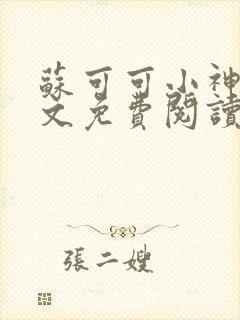 蘇可可小神
文免費閱讀
張二嫂